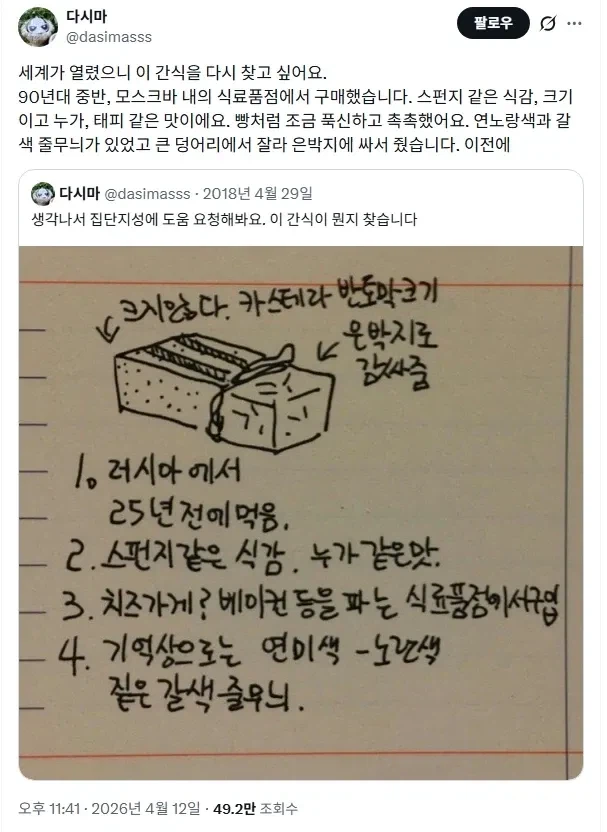 다시마
@dasimasss
팔로우
세계가 열렸으니 이 간식을 다시 찾고 싶어요.
90년대 중반, 모스크바 내의 식료품점에서 구매했습니다. 스펀지 같은 식감, 크기
이고 누가, 태피 같은 맛이에요. 빵처럼 조금 푹신하고 촉촉했어요. 연노랑색과 갈
색 줄무늬가 있었고 큰 덩어리에서 잘라 은박지에 싸서 줬습니다. 이전에
다시마 @dasimasss · 2018년 4월 29일
생각나서 집단지성에 도움 요청해봐요. 이 간식이 뭔지 찾습니다
크지않다. 카스테라 반토막크기
은박지로
감싸줌
1. 러시아에서
25년전에 먹음.
2. 스펀지같은 식감. 누가같은맛.
3. 치즈가게? 베이컨 등을 파는 식료품점에서구입
4. 기억상으로는 연미색 - 노란색
짙은 갈색 줄무늬.
오후 11:41 · 2026년 4월 12일 · 49.2만 조회수